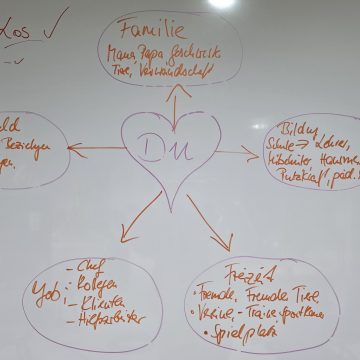 Los ✓
Familie
Mama Papa Geschwister
Tiere, Verwandschaft
DU
Bildung
Schule → Lehrer,
Mitschüler Hausmei
Putzkraft, päd. S
Job:
- Chef
- Kollegen
- Klienten
- Hilfsarbeiter
Freizeit
• Freunde, Fremde Tiere,
• Vereine,
• Spielplatz